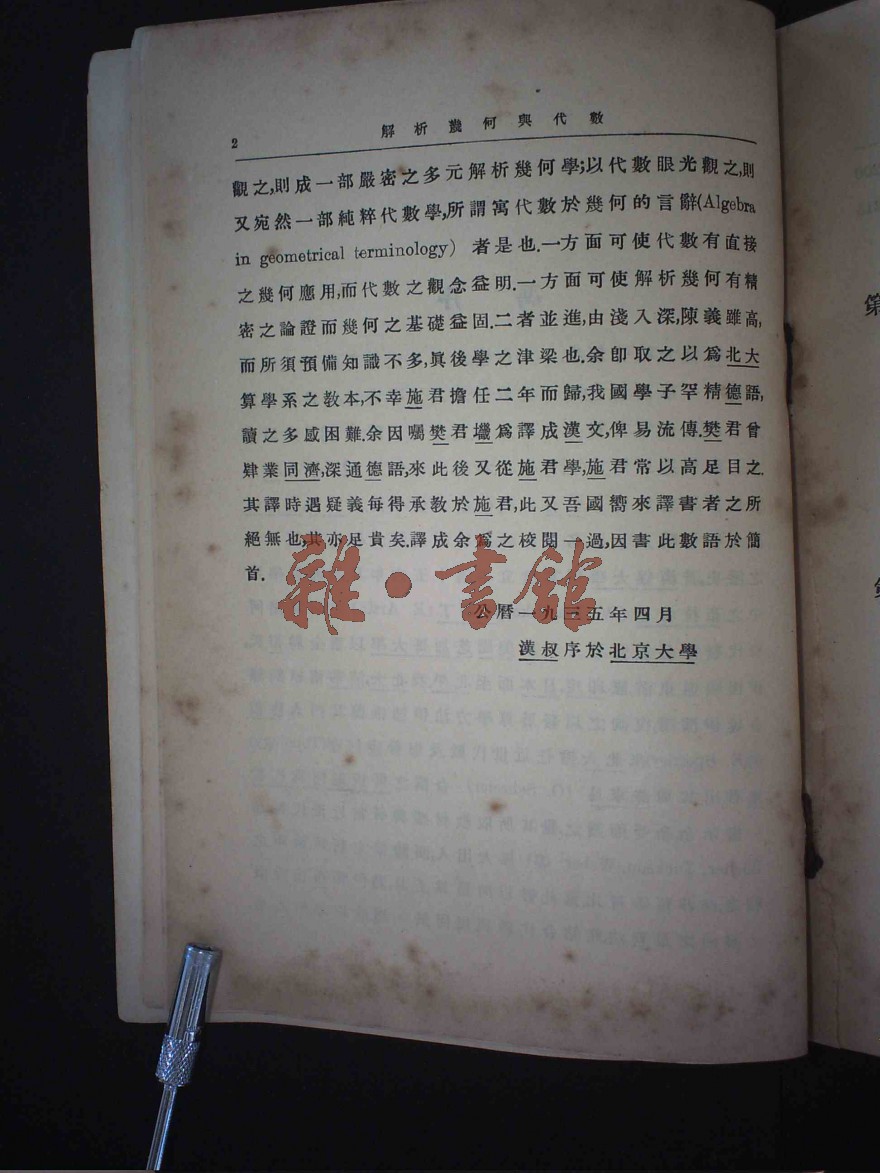 2
解析幾何與代數
觀之,則成一部嚴密之多元解析幾何學;以代數眼光觀之,則
又宛然一部純粹代數學,所謂寓代數於幾何的言辭(Algebra
in geometrical terminology) 者是也.一方面可使代數有直接
之幾何應用,而代數之觀念益明.一方面可使解析幾何有精
密之論證而幾何之基礎益固.二者並進,由淺入深,陳義雖高,
而所須預備知識不多,眞後學之津梁也.余卽取之以爲北大
算學系之教本,不幸施君擔任二年而歸,我國學子罕精德語,
讀之多感困難.余因囑樊君㙻爲譯成漢文,俾易流傳.樊君曾
肄業同濟,深通德語,來此後又從施君學,施君常以高足目之.
其譯時遇疑義每得承教於施君,此又吾國嚮來譯書者之所
絕無也,其亦足貴矣.譯成余爲之校閱一過,因書此數語於簡
首.
公曆一九三五年四月
漢叔序於北京大學
雜·書館
第